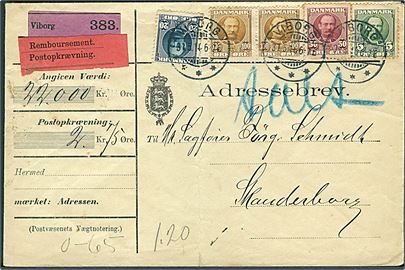 Viborg 383.
Remboursement.
Postopkrævning.
DANMARK
DANMARK
DANMARK
DANMARK
VIBORG
Angiven Værdi:
22.000 Kr. Øre.
Postopkrævning:
2 Kr. 75 Øre.
Hermed
mærket: Adressen.
(Postvæsenets Vægtnotering.)
0-65
1.20
Adressebrev.
Til Hr. Sagfører Jörg. Schmidt
Skanderborg